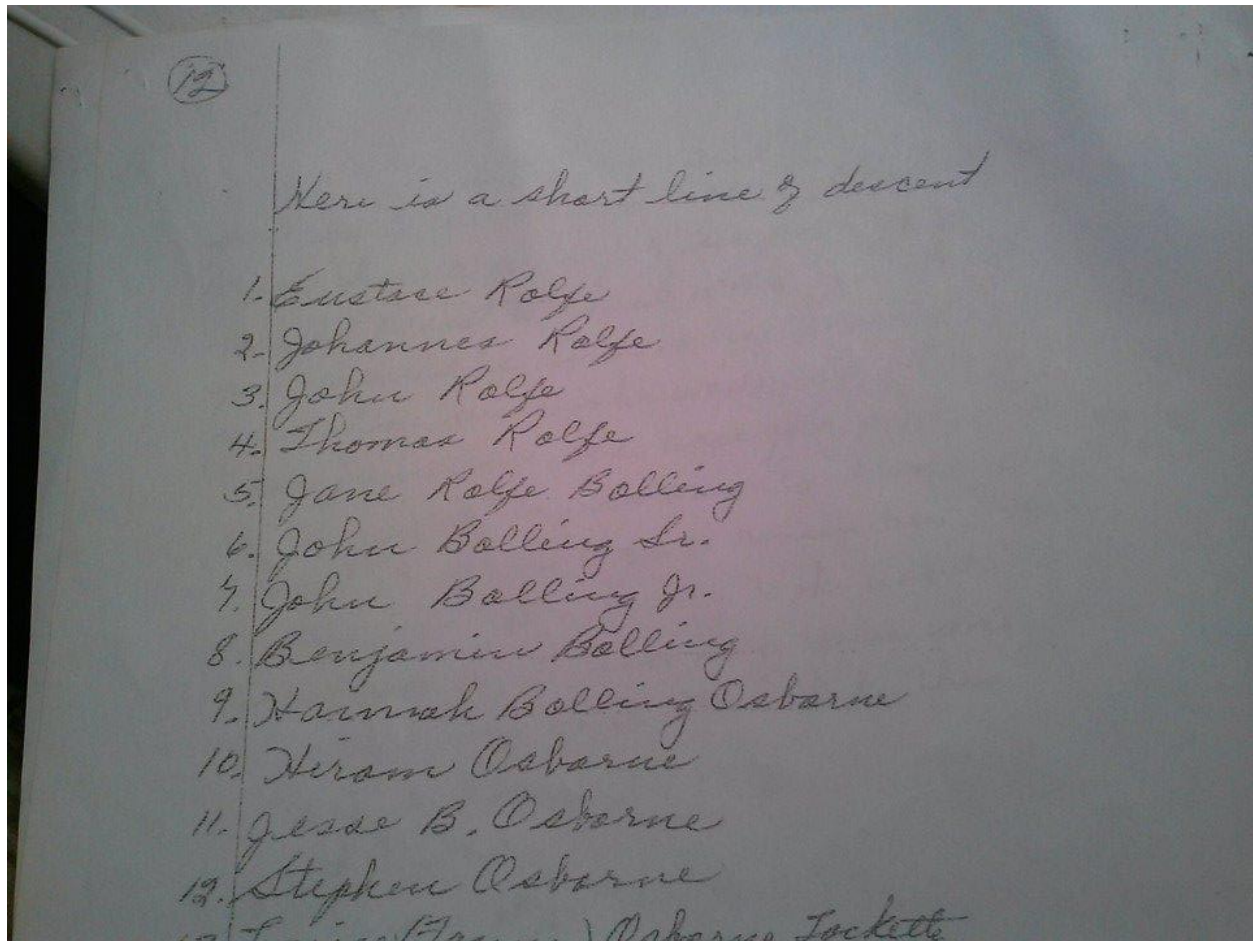 12
Here is a short line of descent
1. Eustace Rolfe
2. Johannes Rolfe
3. John Rolfe
4. Thomas Rolfe
5. Jane Rolfe Bolling
6. John Bolling Sr.
7. John Bolling Jr.
8. Benjamin Bolling
9. Hannah Bolling Osborne
10. Hiram Osborne
11. Jesse B. Osborne
12. Stephen Osborne
13. Osborne Lockette